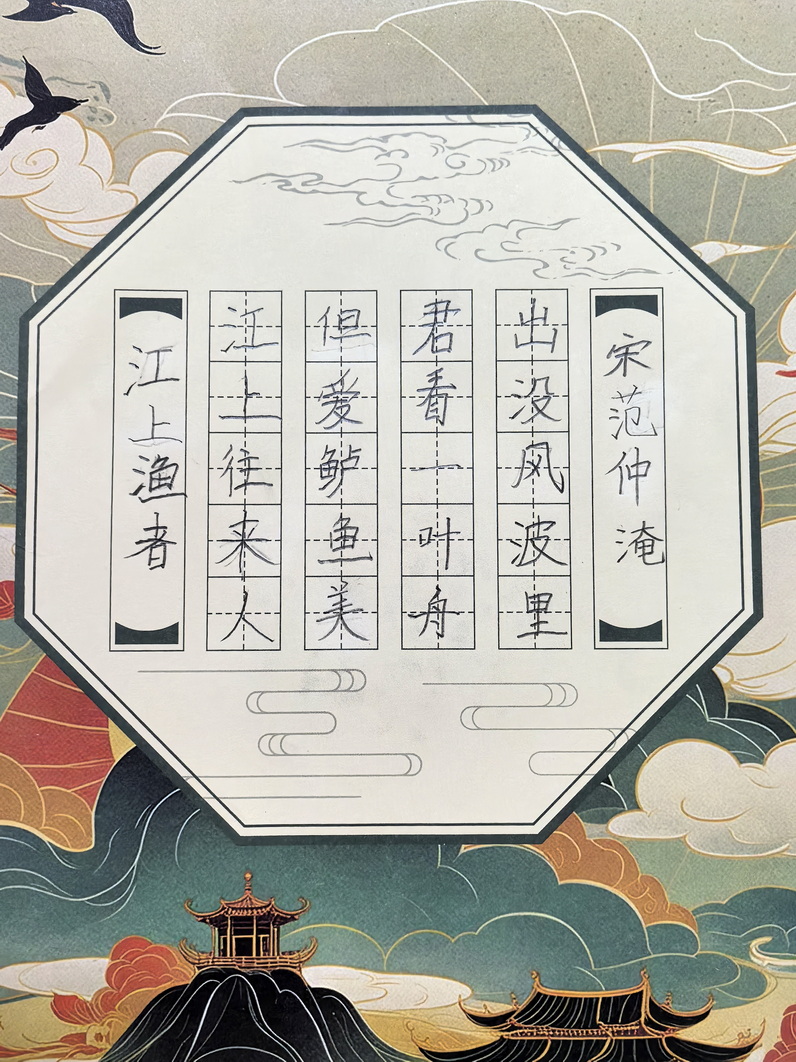 江上渔者
江上往来人
但爱鲈鱼美
君看一叶舟
出没风波里
宋范仲淹